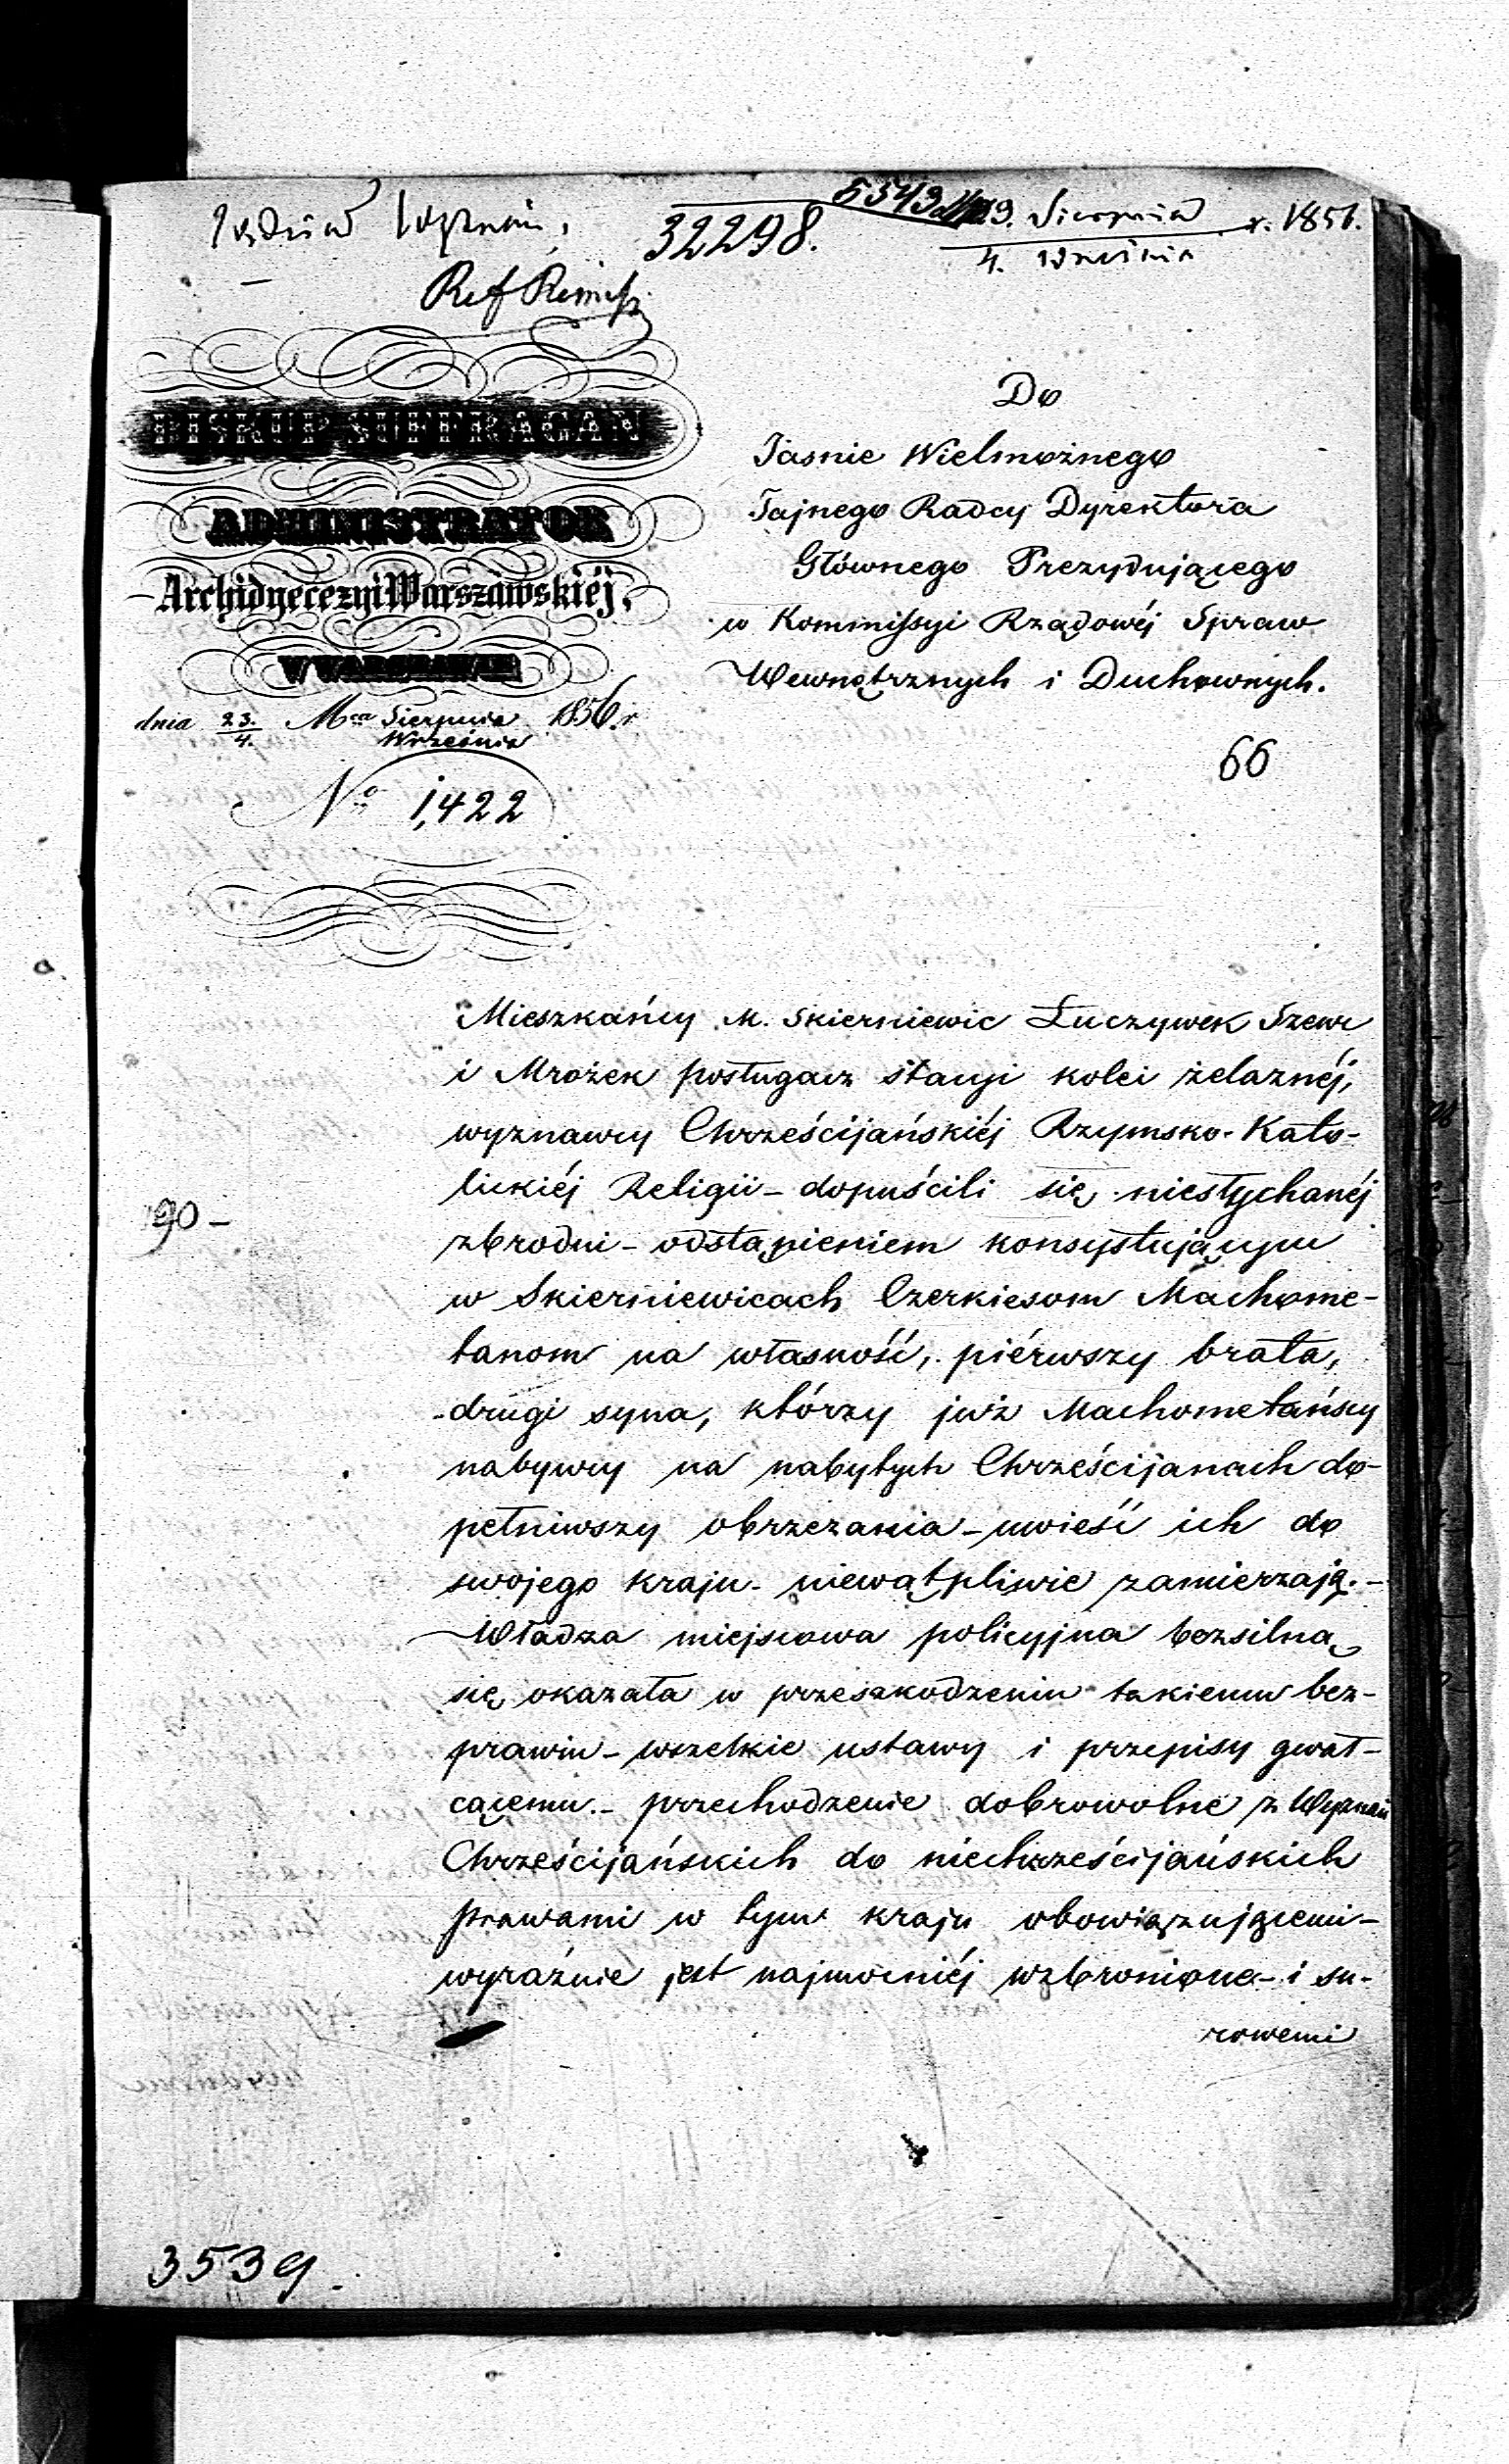 32298. 5543 Sierpnia r. 1856.
4. Września
Ref
BISKUP SUFFRAGAN
ADMINISTRATOR
Archidyecezyi Warszawskiéj,
W WARSZAWIE
dnia 23./4. Mca Sierpnia/Września 1856 r
No 1,422
Do
Jasnie Wielmożnego
Tajnego Radcy Dyrektora
Głównego Prezydującego
w Kommissyi Rządowéj Spraw
Wewnętrznych i Duchownych.
66
Mieszkańcy M. Skierniewic Łuczywek Szewc
i Mrożek posługacz stacyi kolei żelaznéj,
wyznawcy Chrześcijańskiéj Rzymsko-Kato-
lickiéj Religii - dopuścili się niesłychanéj
90 -
zbrodni - odstąpieniem konsystującym
w Skierniewicach Czerkiesom Machome-
tanom na własność, piérwszy brata,
drugi syna, którzy już Machometańscy
nabywcy na nabytych Chrześcijanach do-
pełniwszy obrzezania - uwieść ich do
swojego kraju - niewątpliwie zamierzają. -
Władza miejscowa policyjna bezsilną
się okazała w przeszkodzeniu takiemu bez-
prawiu - wszelkie ustawy i przepisy gwał-
cącemu. - przechodzenie dobrowolne z Wyznań
Chrześcijańskich do niechrześcijańskich
prawami w tym kraju obowiązującemi -
wyraźnie jest najmocniéj wzbronione - i su-
rowemi
3539